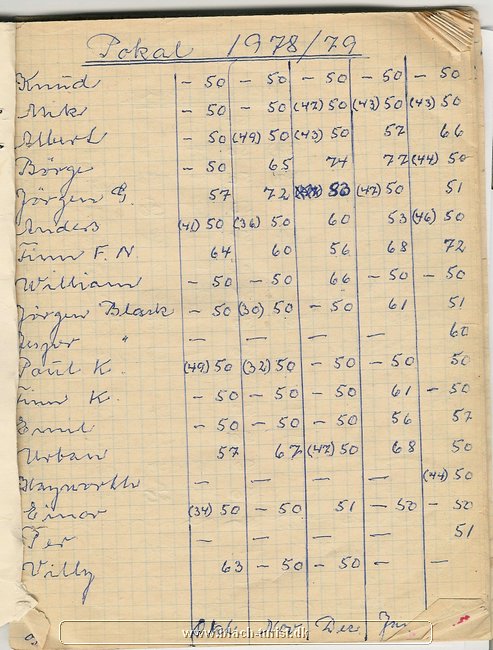 Pokal 1978/79
Knud - 50 - 50 - 50 - 50 - 50
Nik - 50 - 50 (42) 50 (43) 50 (43) 50
Albert - 50 (49) 50 (43) 50 52 66
Börge - 50 65 74 77 (44) 50
Jörgen G. 57 72 53 (47) 50 51
Anders (41) 50 (36) 50 60 53 (46) 50
Finn F. N. 64 60 56 68 72
William - 50 - 50 66 - 50 - 50
Jörgen Black - 50 (30) 50 - 50 61 51
Jesper " - - - - 60
Poul K. (49) 50 (32) 50 - 50 - 50 50
Finn K. - 50 - 50 - 50 61 - 50
Emil - 50 - 50 - 50 56 57
Urban 57 67 (47) 50 68 50
Hayworth - - - - (44) 50
Einar (34) 50 - 50 51 - 50 - 50
Per - - - - 51
Villy 63 - 50 - 50 - -
Okt. Nov. Dec. Jan